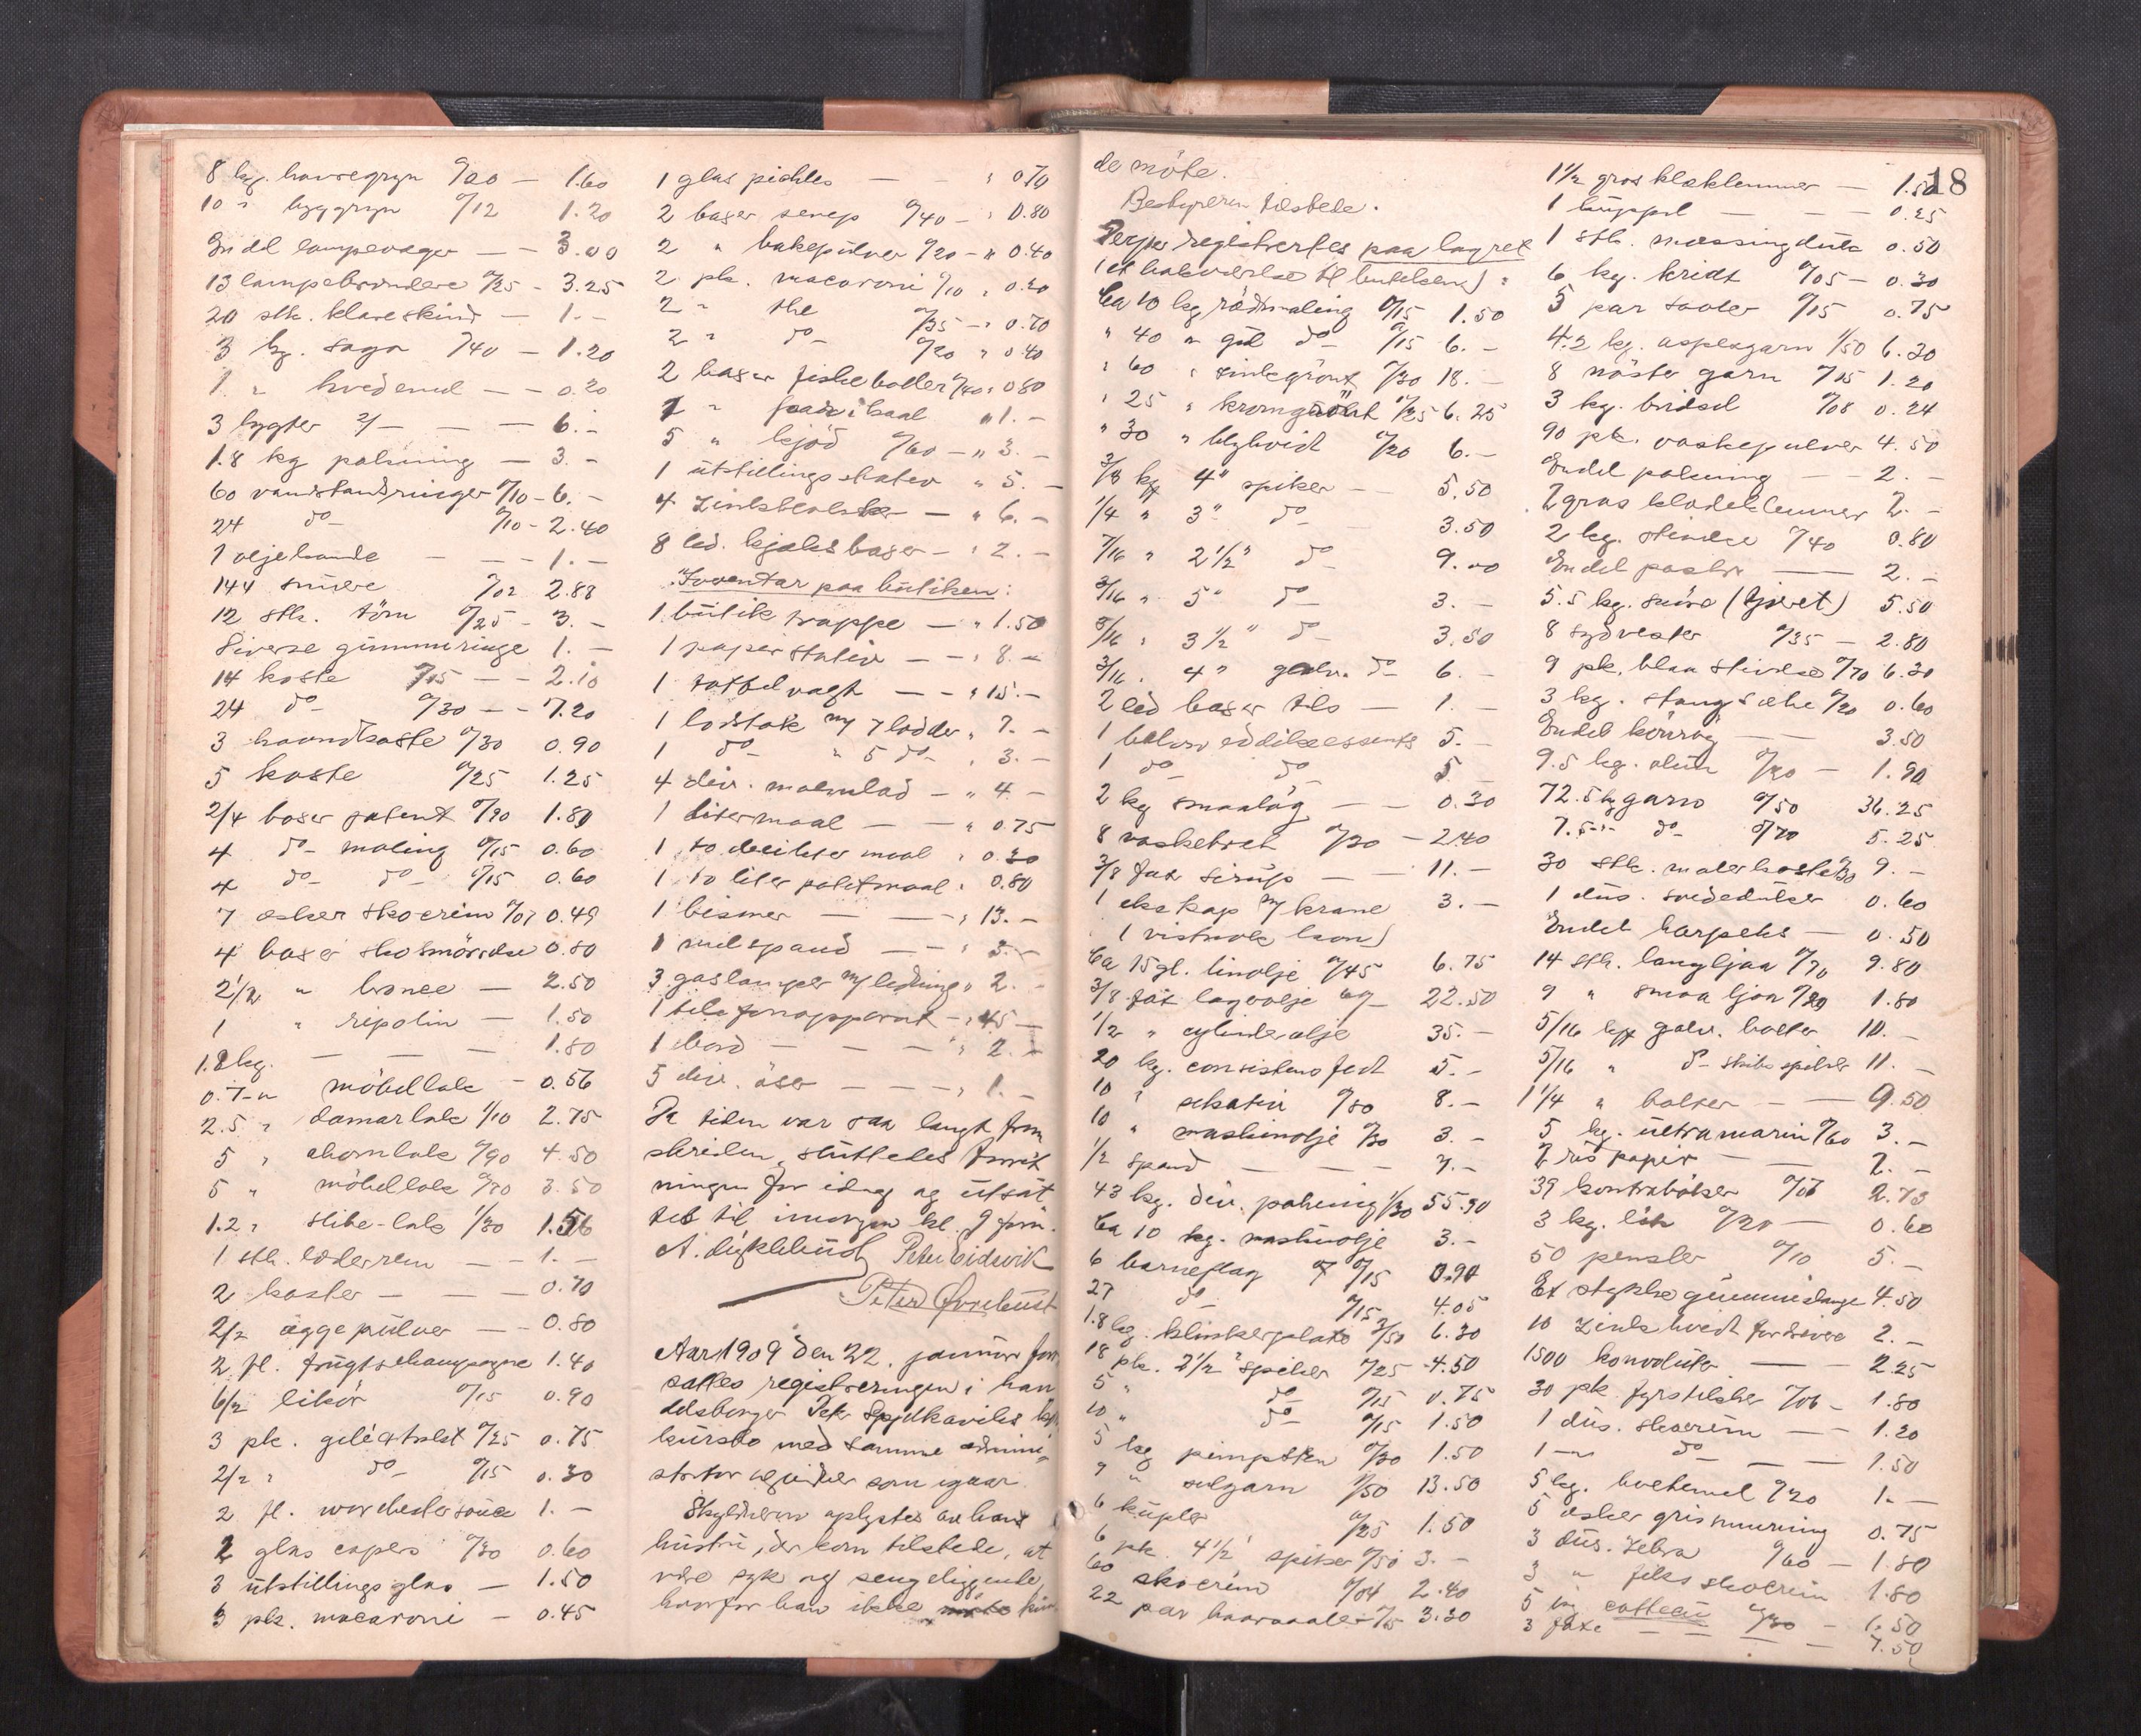 8 kg. havregryn %20 — 1.60
10 " byggryn %12 1.20
Endel lampevæger — 3.00
13 lampebrændere %25 - 3.25
20 stk. klareskind — 1.-
3 kg. sago %40 — 1.20
1 " hvedemel — — 0.20
3 lygter 2/- — — 6.-
1.8 kg pakning — 3.-
60 vandstandsringer %10 - 6.-
24 do %10 - 2.40
1 oljekande — — — 1.-
144 snüre %02 2.88
12 stk. törn %25 - 3.-
Diverse gümmiringe 1.-
14 koste %15 — — 2.10
24 do %30 — — 7.20
3 haandkoste %30 0.90
5 koste %25 1.25
2/4 boxer patent %90 1.80
4 do maling %15 0.60
4 do do %15 0.60
7 æsker skocrem %07 0.49
4 boxer skosmörelse 0.80
2 1/2 " bronce — 2.50
1 " repolin — 1.50
1.2 kg. — — — 1.80
0.7 " möbellak — 0.56
2.5 " damarlak 1/10 2.75
5 " ahornlak %90 4.50
5 " möbellak %70 3.50
1.2 " slibe-lak 1/30 1.56
1 stk. læderrem — — 1.-
2 koster — — — 0.70
2/2 äggepülver — — 0.80
2 fl. frügtschampagne 1.40
6/2 likör %15 0.90
3 pk. geléatsikt %25 0.75
2/2 " do %15 0.30
2 fl. worchestersauce 1.-
2 glas capers %30 0.60
3 ütstillingsglas — 1.50
3 pk. macaroni — 0.45
1 glas pickles — " 0.70
2 baxer senep %40 - " 0.80
2 " bakepülver %20 - " 0.40
2 pk. macaroni %10 " 0.20
2 " the %35 - " 0.70
2 " do %20 " 0.40
2 baxer fiskeboller %40 " 0.80
2 " faar i kaal " 1.-
5 " kjöd %60 - " 3.-
1 ütstillingsstativ " 5.-
4 Zink — " 6.-
8 led. kjæksbaxer - " 2.-
Inventar paa bütiken:
1 bütiktrappe — " 1.50
1 papirstativ — — " 8.-
1 taffelvægt — — " 15.-
1 lodstok m/ 7 lodder " 7.-
1 do " 5 do " 3.-
4 div. malmlod — " 4.-
1 litermaal — — " 0.75
1 10 deciliter maal " 0.30
1 10 liter potetmaal " 0.80
1 bismer — — " 13.-
1 melspand — — " 3.-
3 gaslamper m/ ledning " 2.-
1 telefonapparat - " 45.-
1 bord — — — " 2.-
5 div. öser — — — " 1.-
Da tiden var saa langt frem
skriden, slüttedes forret
ningen for idag og ütsat
tes til imorgen kl. 9 form.
Peter Eidsvik
Peter Ørrebust
Aar 1909 den 22. januar fort
sattes registreringen i han
delsborger Peter Spjelkaviks kon
kursbo med samme admini-
strator og vidner som igaar.
Skyldneren oplystes av hans
hüstrü, der kom tilstede, at
være syk og sengeliggende,
hvorfor han ikke kün
18
de möte.
Bestyreren tilstede.
Derpaa registrertes paa lagret
(et bakværelse til butikken):
Ca 10 kg rödmaling %15 1.50
" 40 " gül do %15 6.-
" 60 " zinkgrönt %30 18.-
" 25 " kromgrönt %25 6.25
" 30 " blyhvidt %20 6.-
3/8 kg 4" spiker — 5.50
1/4 " 3" do 3.50
7/16 " 2 1/2" do 9.00
3/16 " 5" do 3.-
3/16 " 3 1/2" do 3.50
3/16 " 4" galv. do 6.-
2 led baxer tils — 1.-
1 balon eddikessents 5.-
1 do do 5.-
2 kg smaalög — — 0.30
8 vaskebret %30 — 2.40
3/8 fat sirüp — — 11.-
1 ekskap m/ krane 3.-
Ca 15 gl. linolje %45 6.75
3/8 fat lagerolje 22.50
1/2 " cylinderolje 35.-
20 kg. consistensfedt 5.-
10 " sikativ %80 8.-
10 " maskinolje %30 3.-
1/2 spand — — — 7.-
43 kg. div. pakning 1/30 55.90
Ca 10 kg. maskinolje 3.-
6 barneflag %15 0.90
27 do %15 4.05
1.8 kg. klinkerplato 3/50 6.30
18 pk. 2 1/2" spiker %25 4.50
5 " do %15 0.75
10 " do %15 1.50
5 kg pimpsten %30 1.50
9 " selgarn 1/50 13.50
6 küpler %25 1.50
6 pk. 4 1/2" spiker %50 3.-
60 skocrem %04 2.40
22 par haarsaaler %15 3.30
1 1/2 gros klæklemmer — 1.50
1 — — — 0.25
1 stk. messingdüla 0.50
6 kg. kridt %05 - 0.30
5 par saaler %15 0.75
4.2 kg. aspesgarn 1/50 6.30
8 nöster garn %15 1.20
3 kg. brissel %08 0.24
90 pk. vaskepulver 4.50
Endel pakning — — 2.-
2 gros klædeklemmer 2.-
2 kg. stivelse %40 0.80
Endel — 2.-
5.5 kg. snöre (tjæret) 5.50
8 sydvester %35 — 2.80
9 pk. blaa stivelse %70 6.30
3 kg. stangsæbe %20 0.60
Endel könrög — 3.50
9.5 kg. alün %20 — 1.90
72.5 kg garn %50 36.25
7.5 " do %70 5.25
30 stk. malerkoste %30 9.-
1 düs. 0.60
Endel harpeks — 0.50
14 stk. langljaa %70 9.80
9 " smaa ljaa %20 1.80
5/16 kg galv. bolter 10.-
5/16 " do skibsspiker 11.-
1 1/4 " bolter — — 9.50
5 kg. ültramarin %60 3.-
2 ris papir — — 2.-
39 kontrabøker %07 2.73
3 kg. lök %20 — 0.60
50 pensler %10 5.-
Et stykke gümmislange 4.50
10 Zinkhvidt fordrivere 2.-
1500 konvolüter — 2.25
30 pk. fyrstikker %06 - 1.80
1 düs. skocrem — — 1.20
1 — " do — — 1.50
5 kg. hvetemel %20 1.-
5 æsker grismurning 0.75
3 düs. Zebra %60 — 1.80
3 " fiks skocrem 1.80
5 %30 — 1.50
3 fakse — — — — 7.50